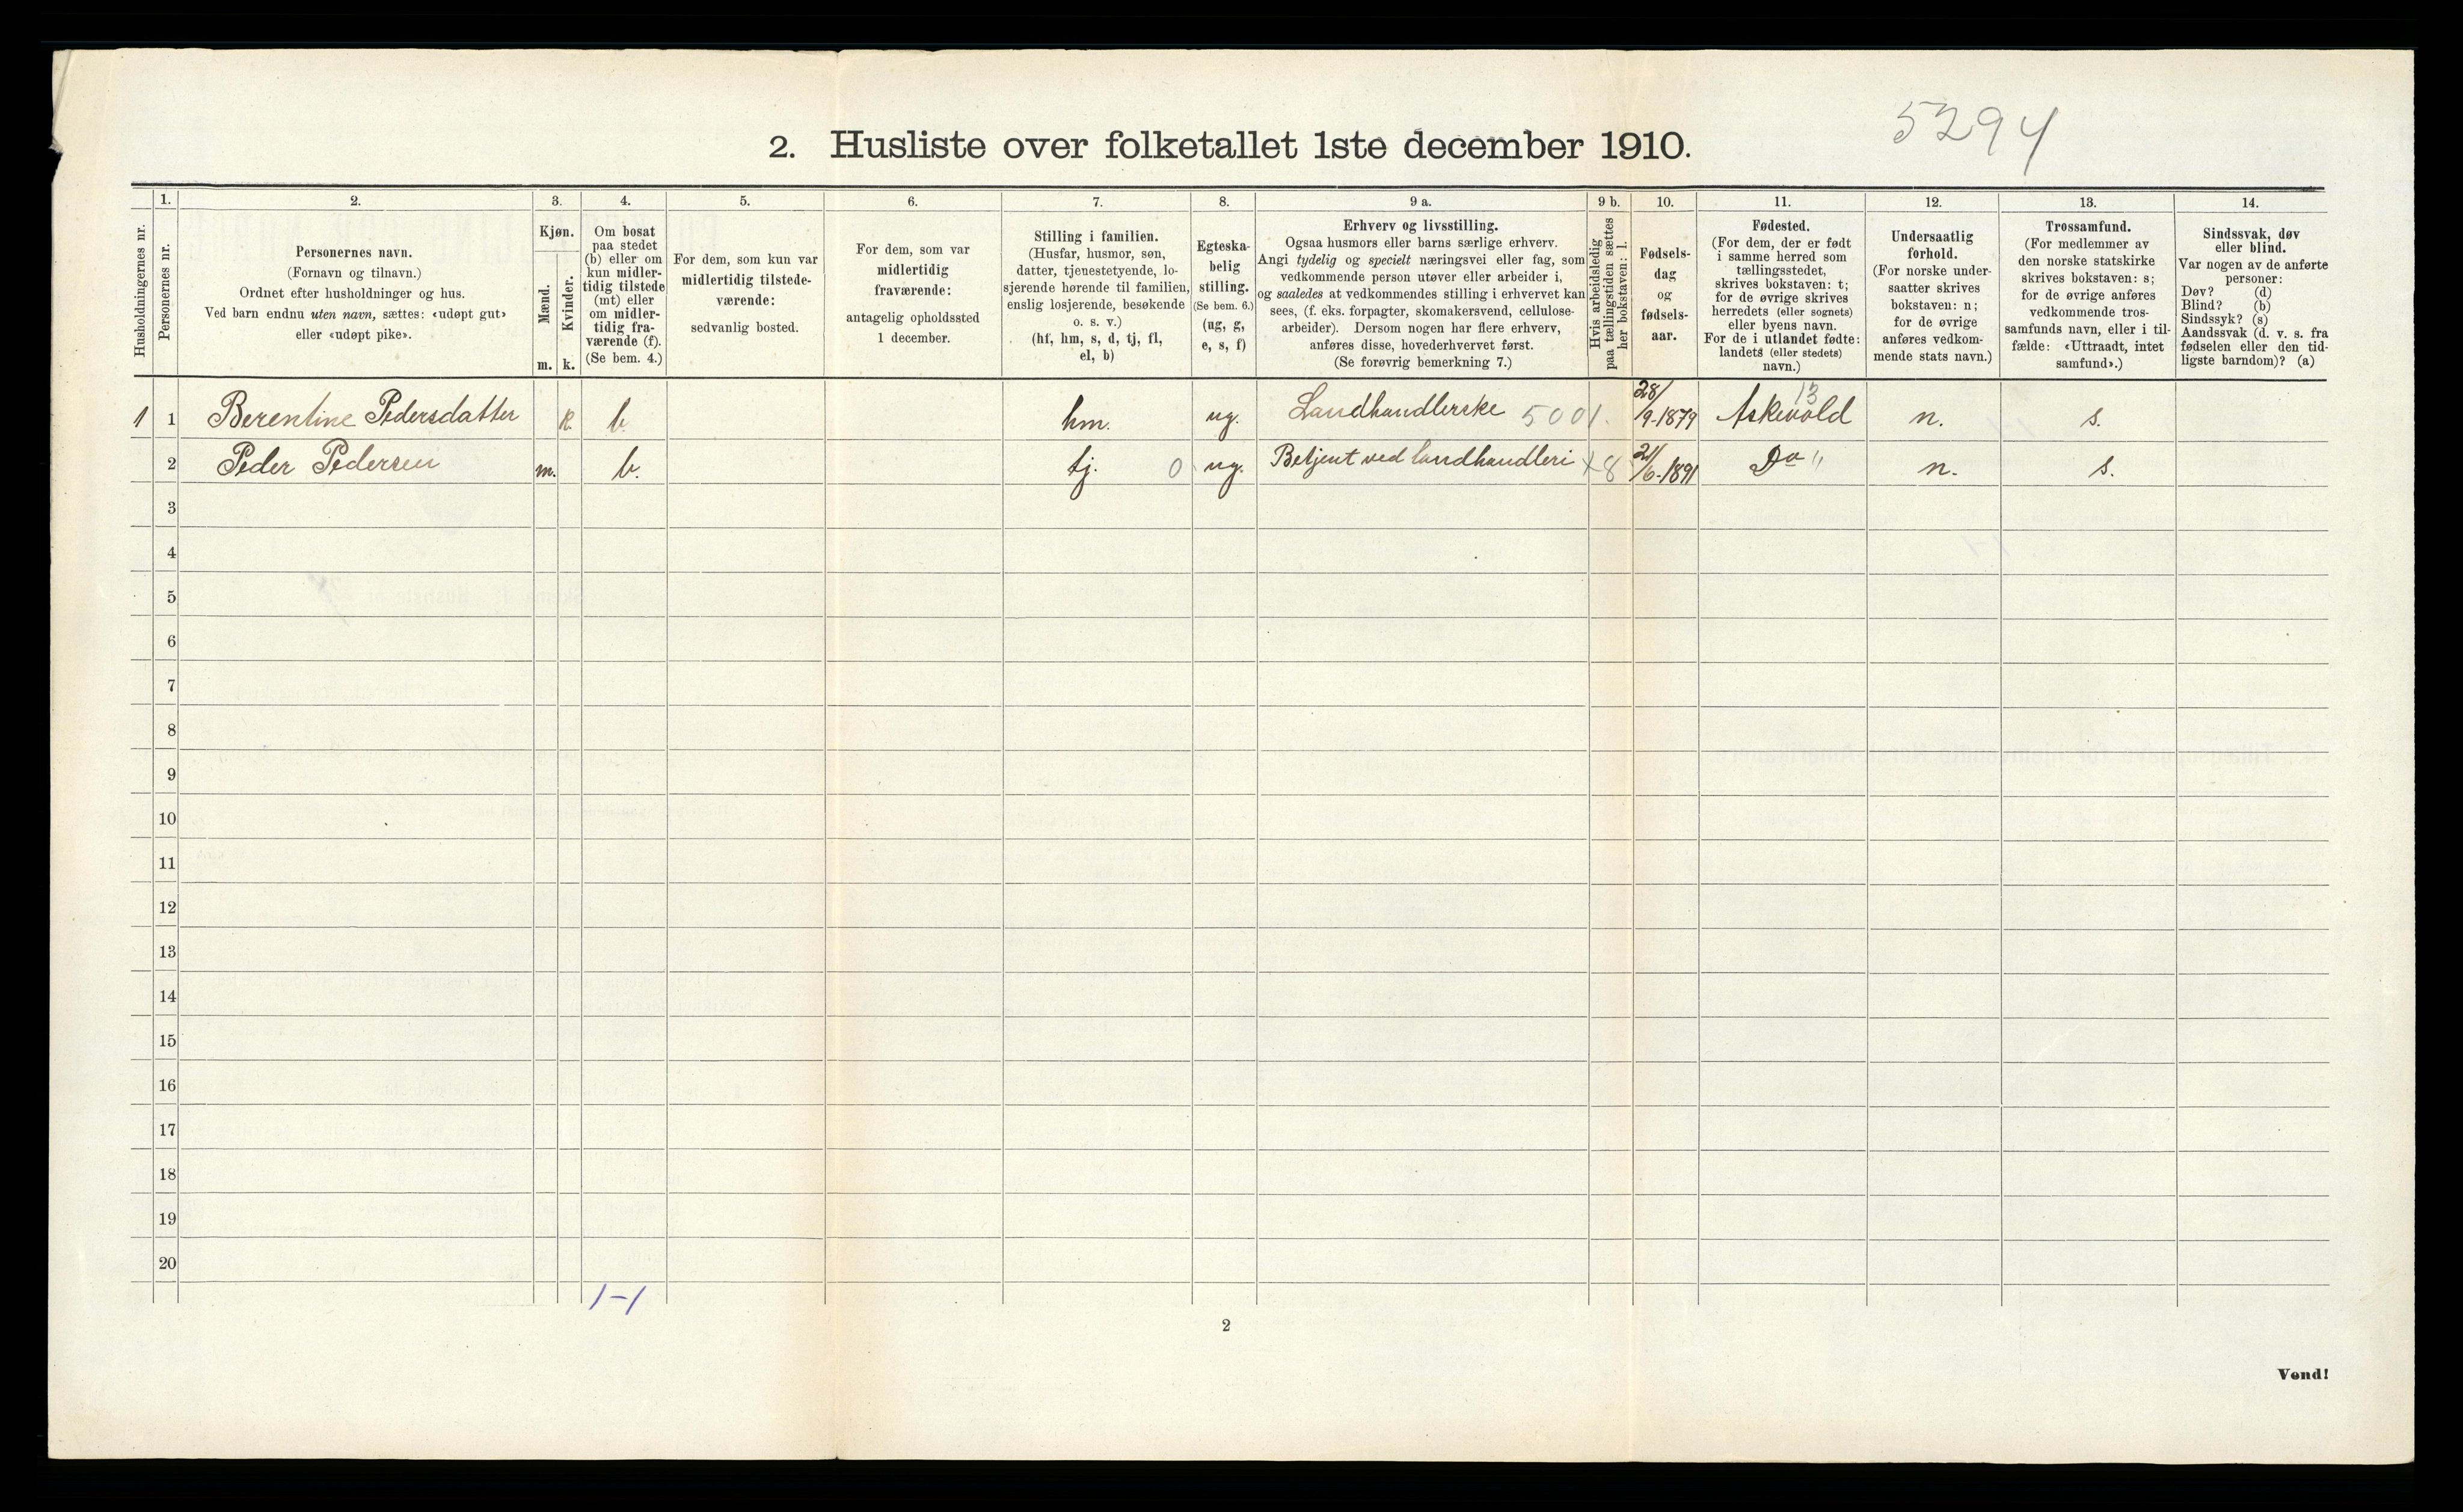 5294
2. Husliste over folketallet 1ste december 1910.
Husholdningernes nr.
1.
Personernes nr.
2.
Personernes navn.
(Fornavn og tilnavn.)
Ordnet efter husholdninger og hus.
Ved barn endnu uten navn, sættes: «udøpt gut»
eller «udøpt pike».
3.
Kjøn.
Mænd.
m.
Kvinder.
k.
4.
Om bosat
paa stedet
(b) eller om
kun midler-
tidig tilstede
(mt) eller
om midler-
tidig fra-
værende (f).
(Se bem. 4.)
5.
For dem, som kun var
midlertidig tilstede-
værende:
sedvanlig bosted.
6.
For dem, som var
midlertidig
fraværende:
antagelig opholdssted
1 december.
7.
Stilling i familien.
(Husfar, husmor, søn,
datter, tjenestetyende, lo-
sjerende hørende til familien,
enslig losjerende, besøkende
o. s. v.)
(hf, hm, s, d, tj, fl,
el, b)
8.
Egteska-
belig
stilling.
(Se bem. 6.)
(ug, g,
e, s, f)
9 a.
Erhverv og livsstilling.
Ogsaa husmors eller barns særlige erhverv.
Angi tydelig og specielt næringsvei eller fag, som
vedkommende person utøver eller arbeider i,
og saaledes at vedkommendes stilling i erhvervet kan
sees, (f. eks. forpagter, skomakersvend, cellulose-
arbeider). Dersom nogen har flere erhverv,
anføres disse, hovederhvervet først.
(Se forøvrig bemerkning 7.)
9 b.
Hvis arbeidsledig
paa tællingstiden sættes
her bokstaven: l.
10.
Fødsels-
dag
og
fødsels-
aar.
11.
Fødested.
(For dem, der er født
i samme herred som
tællingsstedet,
skrives bokstaven: t;
for de øvrige skrives
herredets (eller sognets)
eller byens navn.
For de i utlandet fødte:
landets (eller stedets)
navn.)
12.
Undersaatlig
forhold.
(For norske under-
saatter skrives
bokstaven: n;
for de øvrige
anføres vedkom-
mende stats navn.)
13.
Trossamfund.
(For medlemmer av
den norske statskirke
skrives bokstaven: s;
for de øvrige anføres
vedkommende tros-
samfunds navn, eller i til-
fælde: «Uttraadt, intet
samfund».)
14.
Sindssvak, døv
eller blind.
Var nogen av de anførte
personer:
Døv? (d)
Blind? (b)
Sindssyk? (s)
Aandssvak (d. v. s. fra
fødselen eller den tid-
ligste barndom)? (a)
1 1 Berentine Pedersdatter k. b. hm. ug. Landhandlerske 5001. 28/9-1879 13 Askevold n. s.
2 Peder Pedersen m. b. tj. 0 ug. Betjent ved landhandleri +8 21/6-1891 Do " n. s.
3
4
5
6
7
8
9
10
11
12
13
14
15
16
17
18
19
20
1-1
2
Vend!